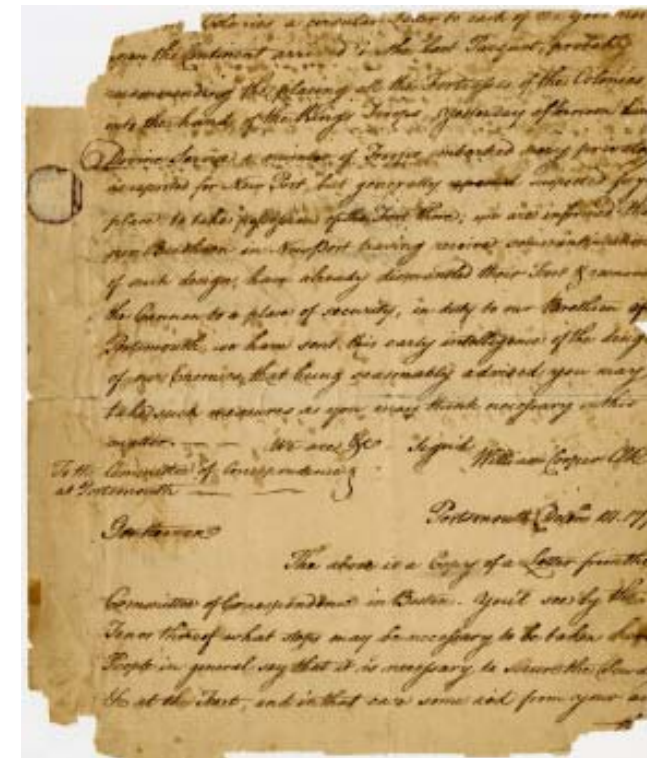 Colonies a circular Letter to each of the Gover
upon the Continent arrived in the last Pacquet, probably
recommending the placing all the Fortresses of the Colonies
into the hands of the Kings Troops, Yesterday afternoon
Divine Service a number of Troops embarked very privately
as reported for New Port, but generally suspected for y
place to take possession of the Fort there; we are informed tha
our Brethren in Newport having receive some
of such design, have already dismantled their Fort & remov
the Cannon to a place of security, in duty to our Brethren of
Portsmouth, we have sent this early intelligence of the desig
of our Enemies, that being seasonably advised you may
take such measures as you may think necessary in this
matter. — — We are &c Signd
William Cooper Clk
To the Committee of Correspondence
at Portsmouth — —
Portsmouth 14. 17
Gentlemen
The above is a Copy of a Letter from the
Committee of Correspondence in Boston. You'll see by the
Tenor thereof what steps may be necessary to be taken
People in general say that it is necessary to secure the
&c at the Fort, and in that case some aid from your